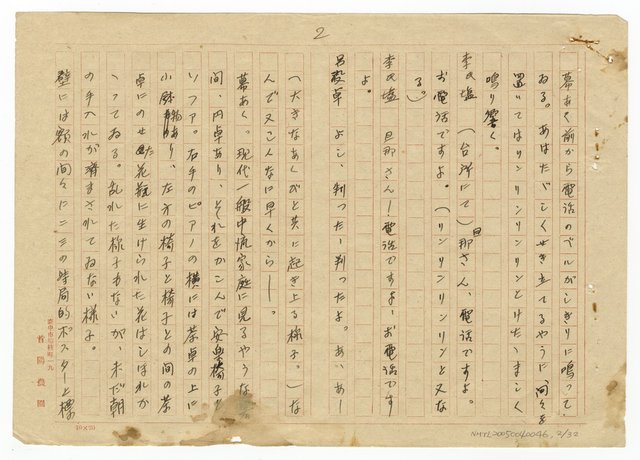 2
幕あく前から電話のベルがしきりに鳴って
ゐる。あはたゞしくせき立てるやうに間々を
置いてはリンリンリンリンとけたゝましく
鳴り響く。
李氏塩 （台所にて）旦那さん、電話ですよ。
お電話ですよ。（リンリンリンリンと又な
る。）
李氏塩 旦那さん！電話ですよ、お電話です
よ。
呂設卓 よし、判った！判ったよ。あゝあー
（大きなあくびと共に起き上る様子。）な
んで又こんなに早くから！。
幕あく。現代一般中流家庭に見るやうな
間、円卓あり、それをかこんで安楽椅子
ソファ。右手のピアノの横には茶卓の上に
小鉢物あり、左方の椅子と椅子との間の茶
卓にのせた花瓶に生けられた花はしほれか
ゝってゐる。乱れた様子もないが、未だ朝
の手入れが済まされてゐない様子。
壁には額の間々に二三の時局的ポスター、標
首陽農園
20×20
NMTL20050040046, 2/32